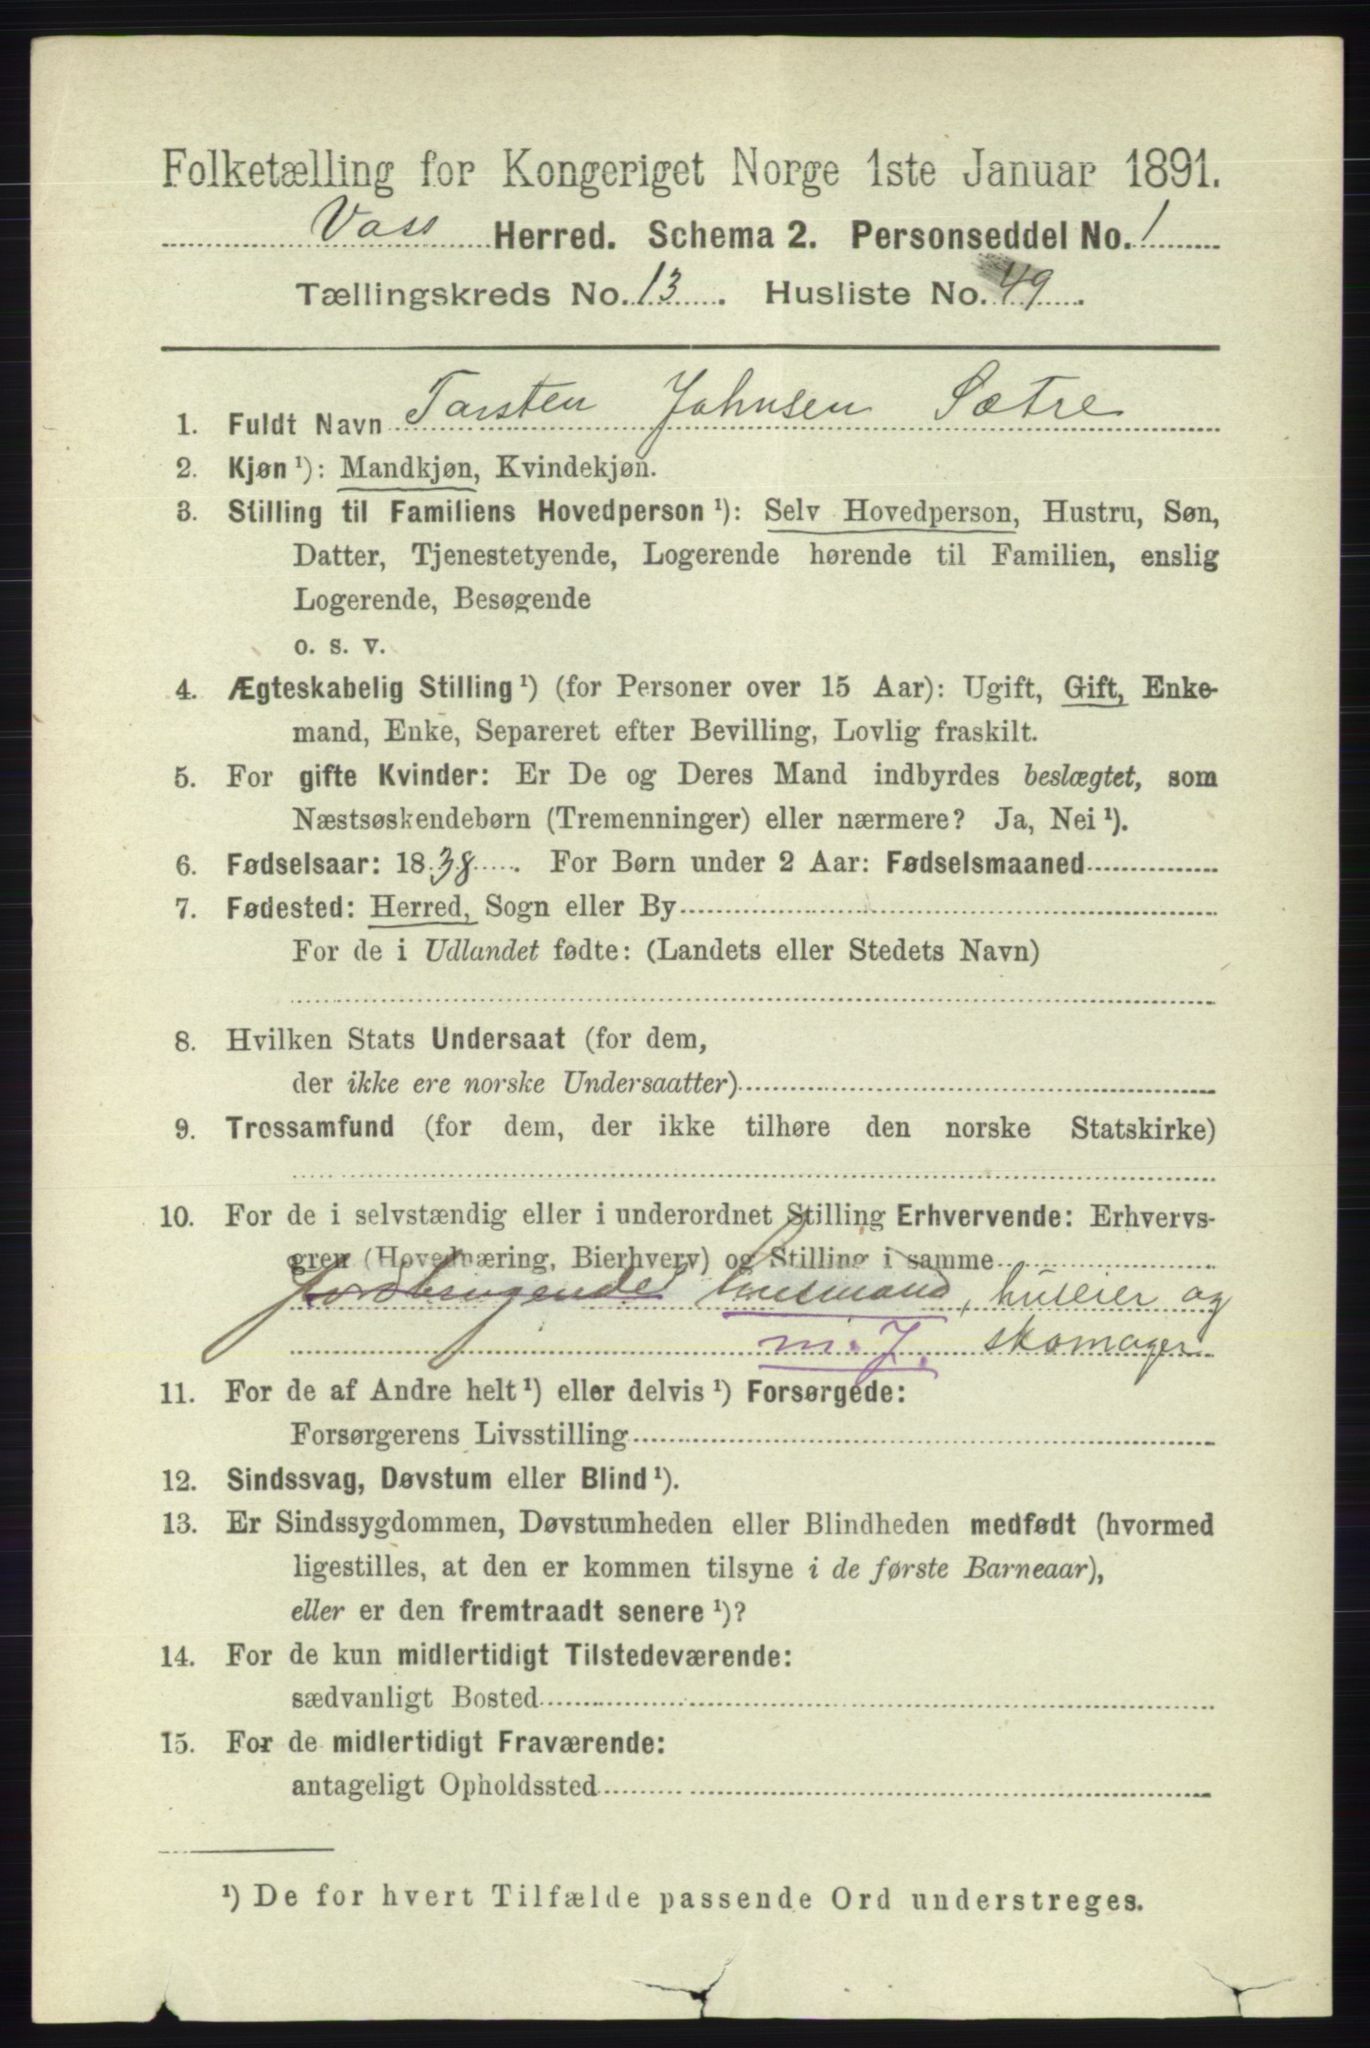 Folketælling for Kongeriget Norge 1ste Januar 1891.
Voss Herred. Schema 2. Personseddel No. 1
Tællingskreds No. 13. Husliste No. 49.
1. Fuldt Navn Torsten Johnsen Sætre
2. Kjøn ¹): Mandkjøn, Kvindekjøn.
3. Stilling til Familiens Hovedperson ¹): Selv Hovedperson, Hustru, Søn,
Datter, Tjenestetyende, Logerende hørende til Familien, enslig
Logerende, Besøgende
o. s. v.
4. Ægteskabelig Stilling ¹) (for Personer over 15 Aar): Ugift, Gift, Enke-
mand, Enke, Separeret efter Bevilling, Lovlig fraskilt.
5. For gifte Kvinder: Er De og Deres Mand indbyrdes beslægtet, som
Næstsøskendebørn (Tremenninger) eller nærmere? Ja, Nei ¹).
6. Fødselsaar: 1838. For Børn under 2 Aar: Fødselsmaaned
7. Fødested: Herred, Sogn eller By
For de i Udlandet fødte: (Landets eller Stedets Navn)
8. Hvilken Stats Undersaat (for dem,
der ikke ere norske Undersaatter)
9. Trossamfund (for dem, der ikke tilhøre den norske Statskirke)
10. For de i selvstændig eller i underordnet Stilling Erhvervende: Erhvervs-
gren (Hovednæring, Bierhverv) og Stilling i samme
Jordbrugende husmand, huseier og
m. J. skomager
11. For de af Andre helt ¹) eller delvis ¹) Forsørgede:
Forsørgerens Livsstilling
12. Sindssvag, Døvstum eller Blind ¹).
13. Er Sindssygdommen, Døvstumheden eller Blindheden medfødt (hvormed
ligestilles, at den er kommen tilsyne i de første Barneaar),
eller er den fremtraadt senere ¹)?
14. For de kun midlertidigt Tilstedeværende:
sædvanligt Bosted
15. For de midlertidigt Fraværende:
antageligt Opholdssted
¹) De for hvert Tilfælde passende Ord understreges.